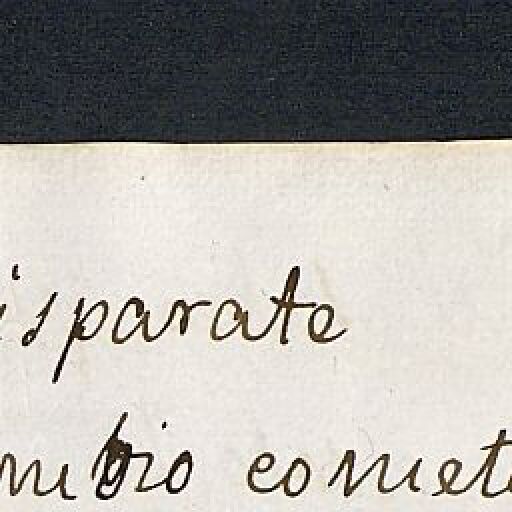 isparate
mbio comet